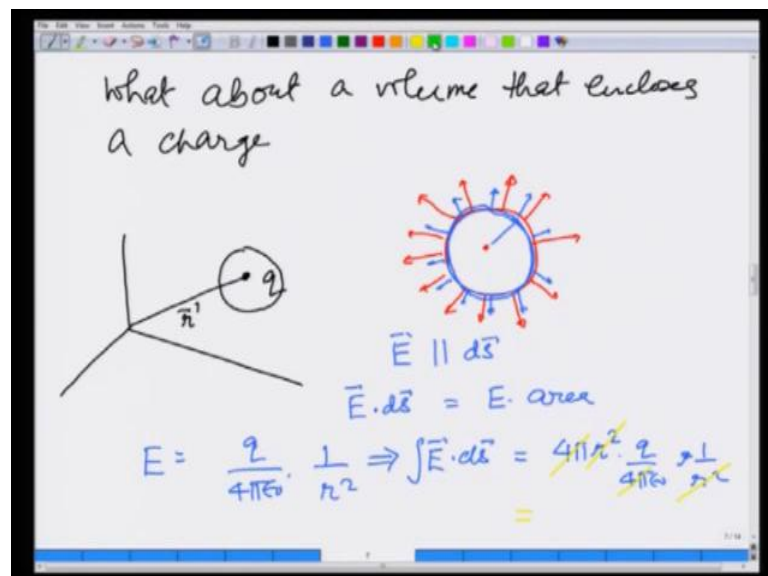 File Edit View Insert Actions Tools Help
What about a volume that encloses
a charge
q
r̄'
Ē || ds̄
Ē . ds̄ = E . area
E = q/4πε₀ . 1/r² ⇒ ∫Ē . ds̄ = 4πr² . q/4πε₀ × 1/r²
=
7/14